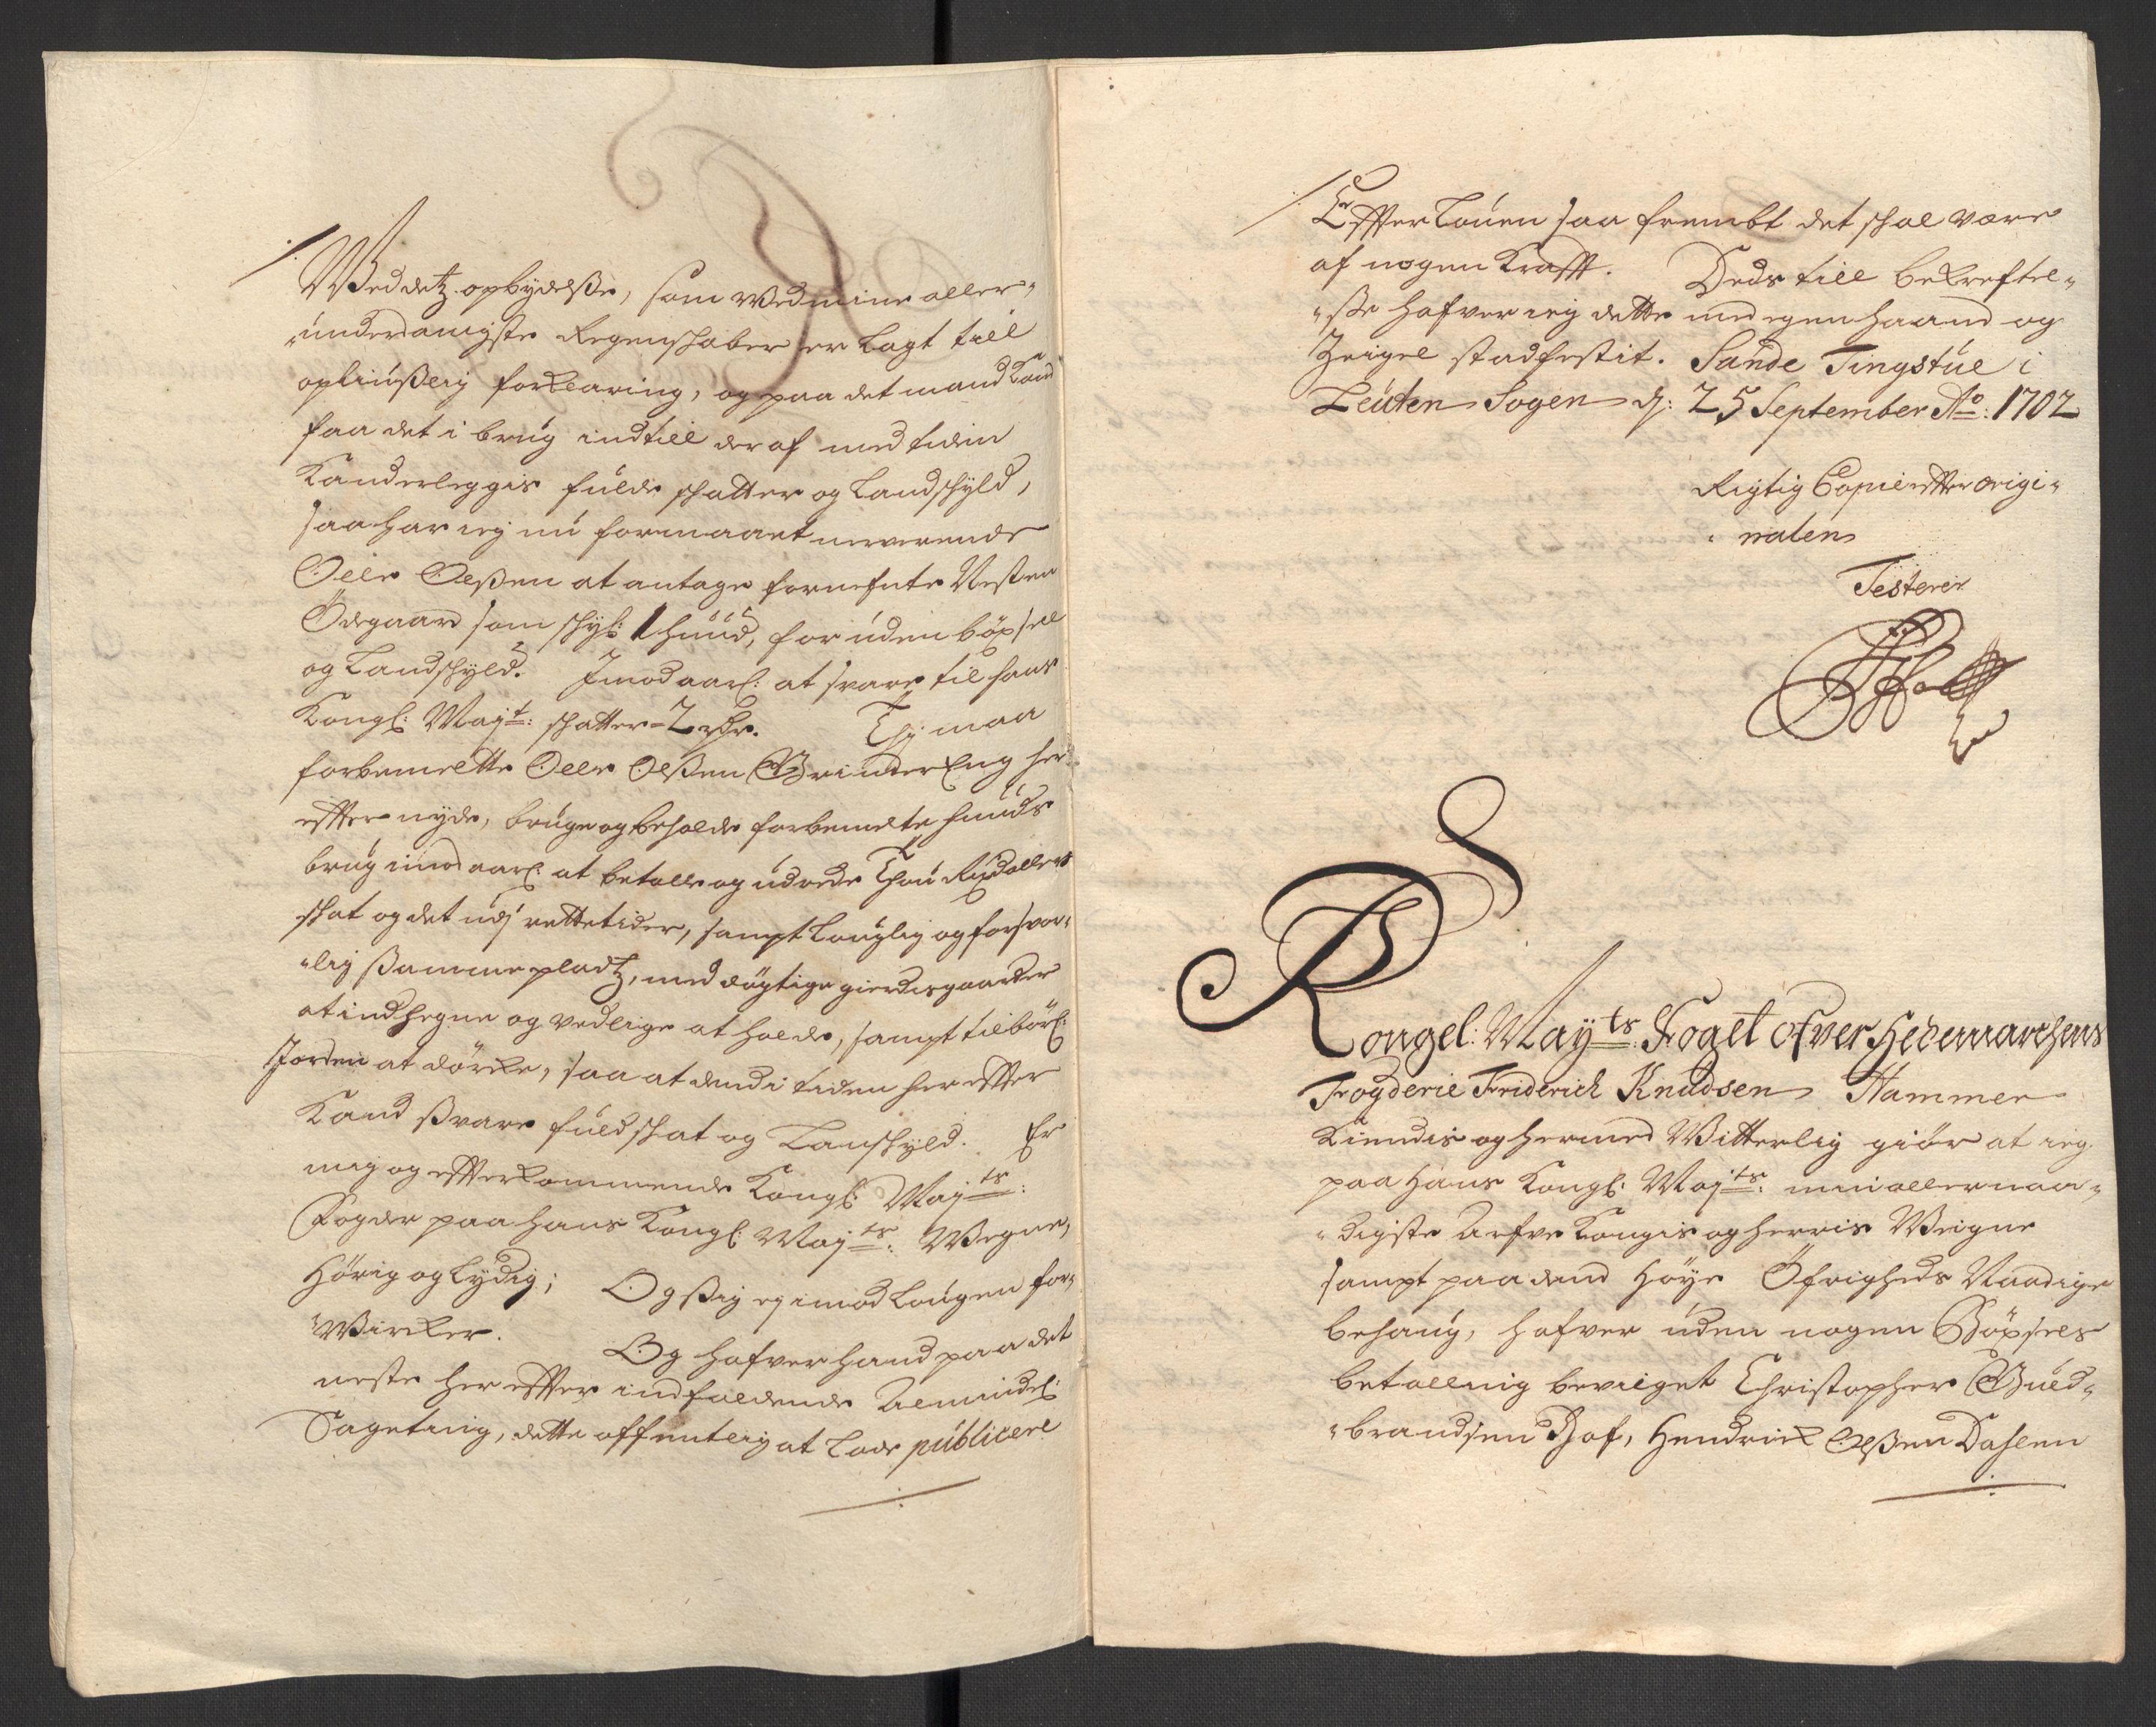 Ved detz opbydelße, som ved mine aller-
underdanigste Regenskaber er lagt till
opliußlig forklaring, og paa det mand kand
faa det i brug indtill deraf med tiden
kand erleggis fulde skatter og Landskyld,
saa har ieg nu formaaet nerverende
Olle Olßen at antage fornefnte Vesten
Ödegaard som skyl: 1 huud, for uden böxsell
og Landskyld. Imod aarl: at svare til hans
Kongl: Mayt: skatter = 2 rdr. Thj maa
forbemelte Olle Olßen Grinder Eng her-
effter nyde, bruge og beholde forbemelte huuds
brug imod aarl: at betalle og udrede Thou Rixdallers
skat og det udj rettetider, sampt louglig og forsvar-
lig ßamme pladtz, med döygtige gierdisgaarder
at indhegne og vedlige at holde, sampt tilbörl:
Jorden at dörke, saa at dend i tiden her effter
kand ßvare fuld skat og Lanskyld. Er
mig og effterkommende Kongl: Mayts:
Fogder paa hans Kongl: Mayts: Vegne,
hörig og lydig; Og ßig ey imod Lougen for-
Vircker. Og hafver hand paa det
neste her effter indfaldende Almindel:
Sageting, dette offentlig at lade publicere
Effter Louen saa frembt det skal være
af nogen Krafft. Deds till bekreftel-
ße hafver ieg dette med egen haand og
Zeigel stadfestit. Sande Tingstue i
Leuten Sogen d: 25 September Ao: 1702
Rigtig Copie effter origi-
nalen
Testerer
Kongel: Mayts: Foget ofver Hedemarchens
Fogderie Friderich Knudsen Hammer
Kiendis og hermed Vitterlig giör at ieg
paa Hans Kongl: Mayts: min allernaa-
digste Arfve Kongis og herris Veigne
sampt paa dend Höye Öfrigheds Naadige
behaug, hafver uden nogen Böxsels
betalling bevilget Christopher Guld-
brandsen Hof, Hendrick Olßen Dahlen